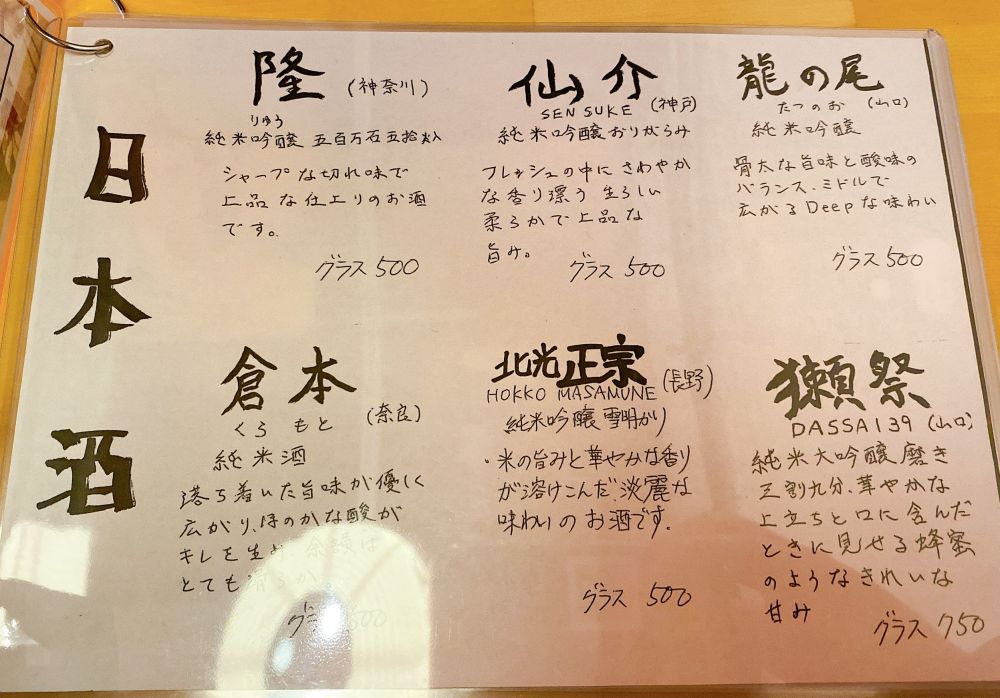 日本酒
隆 (神奈川)
りゅう
純米吟醸 五百万石五拾
シャープな切れ味で
上品な仕上りのお酒
です。
グラス 500
仙介
SENSUKE (神戸)
純米吟醸おりがらみ
フレッシュの中にさわやか
な香り漂う 生らしい
柔らかで上品な
旨み。
グラス 500
龍の尾
たつのお (山口)
純米吟醸
骨太な旨味と酸味の
バランス、ミドルで
広がるDeepな味わい
グラス 500
倉本
くらもと (奈良)
純米酒
落ち着いた旨味が優しく
広がり、ほのかな酸が
キレを生み 余韻は
とても滑らか
グラス 500
北光正宗
HOKKO MASAMUNE (長野)
純米吟醸 雪明かり
・米の旨みと華やかな香り
が溶けこんだ淡麗な
味わいのお酒です.
グラス 500
獺祭
DASSAI39 (山口)
純米大吟醸磨き
三割九分、華やかな
上立ちと口に含んだ
ときに見せる蜂蜜
のようなきれいな
甘み
グラス 750